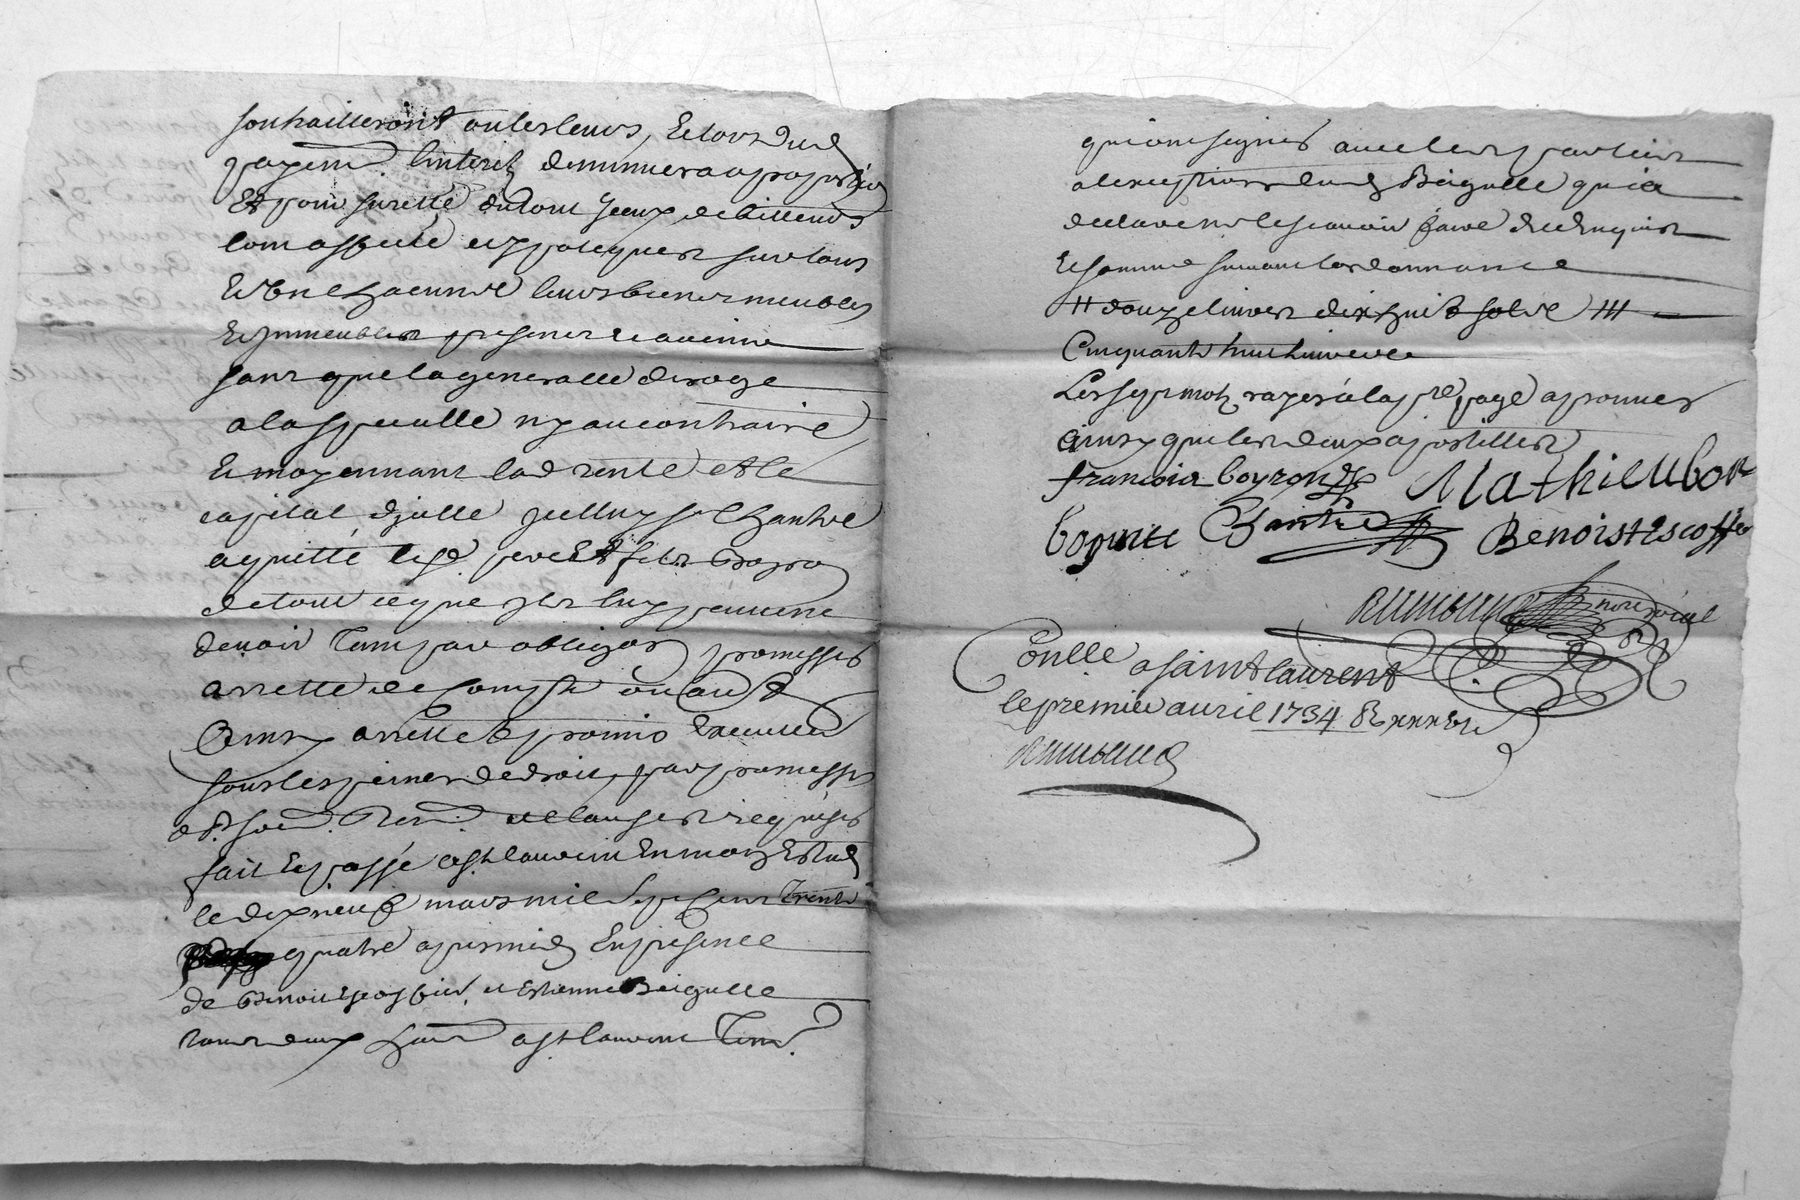 souhaitteront ou les leurs, Et lors dud
payem^t. linterêt diminuera a proportion
Et pour suretté du tout yceux debitteurs
lont affecté et ypotequer sur tous
Et Un chacunne leurs biens meubles
Et ymmeubles presens et avenir
sans que la generalle deroge
a la specialle ny au contraire
Et moyennant lad rente et le
capital djcelle jcelluy s^r Chantre
a quitté les^d pere Et fils
de tout ce que jls luy peuvent
devoir tant par obligaon promesses
arretté de compte ou aut^t
Ainsy arretté promis Executer
sous les peines de droit, par promesses
soum^on. Ren^on. et clauses requises
fait Et passé a s^t laurent En mon Estud
le dix neuf mars mil sept Cent trente
quatre apres midy En presence
de Benoit Escoffier, et Estienne Beigulle
tous deux hab^t a s^t laurent tem^s.
qui ont signés avec les parties
a lexception dud Beigulle qui a
declaré ne le scavoir faire de ce Enquis
Et sommé suivant lordonnance
# douze livres dix huit sols #
Cinquante huit livres
Les sept mots rayes a la p^re page aprouvés
ainsy que les deux apostilles
francois boyron Mathieu bor
Chantre Benoist Escoffier
no^re royal
Conllé a saint laurent
le premier avril 1734